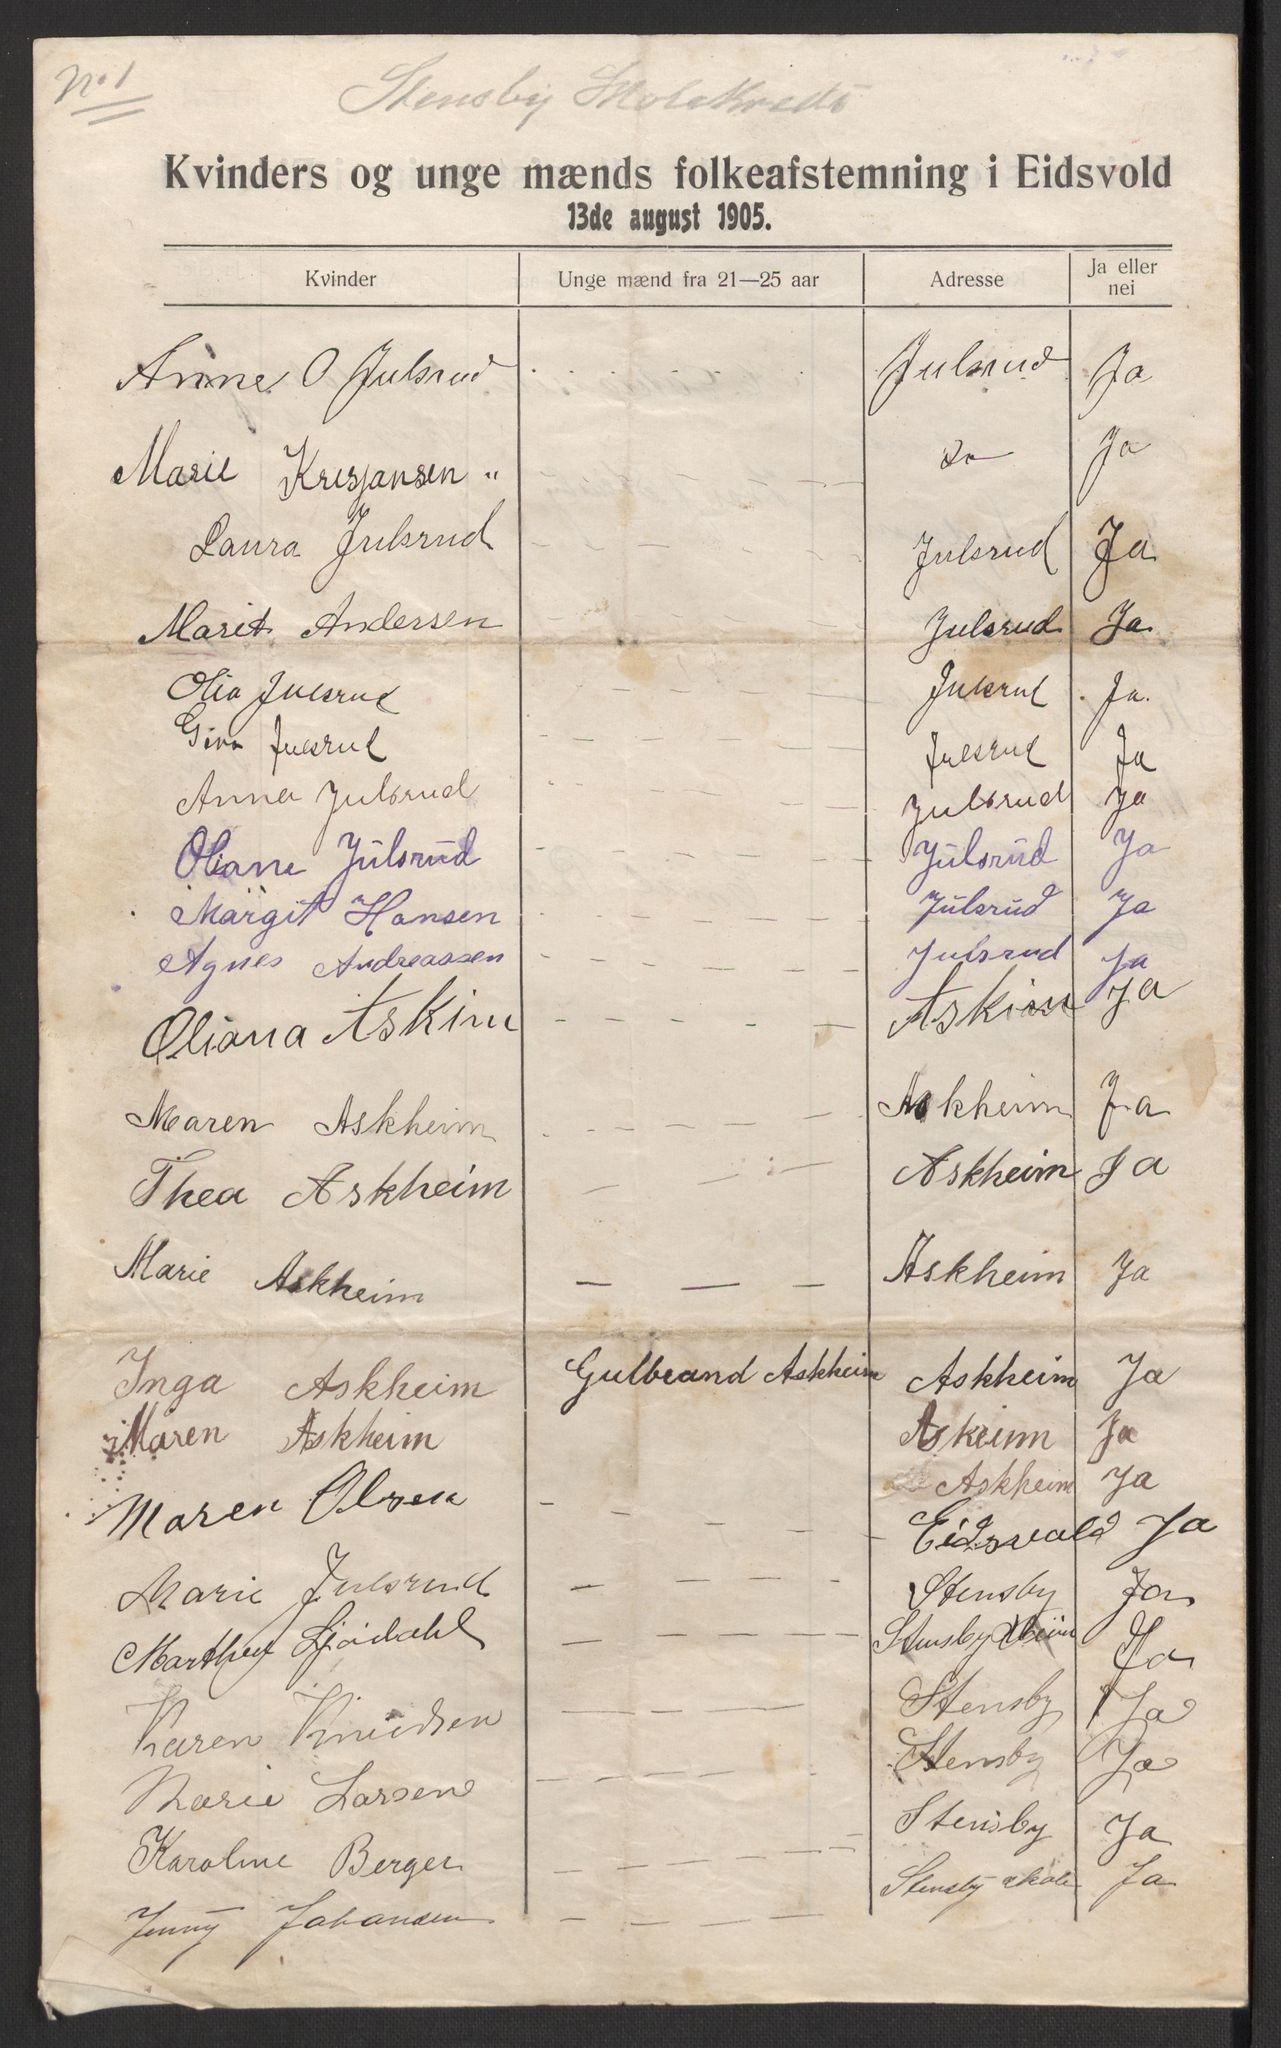 No 1
Stensby Skolekreds
Kvinders og unge mænds folkeafstemning i Eidsvold
13de august 1905.
Kvinder Unge mænd fra 21—25 aar Adresse Ja eller nei
Anne O Julsrud Julsrud Ja
Marie Kresjansen " do Ja
Laura Julsrud Julsrud Ja
Marit Andersen Julsrud Ja
Olia Julsrud Julsrud Ja.
Gina Julsrud Julsrud Ja
Anna Julsrud Julsrud Ja
Oliane Julsrud Julsrud Ja
Margit Hansen Julsrud Ja
Agnes Andreassen Julsrud Ja
Oliana Askim Askim Ja
Maren Askheim Askheim Ja
Thea Askheim Askheim Ja
Marie Askheim Askheim Ja
Inga Askheim Gulbrand Askheim Askheim Ja
Maren Askheim Askeim Ja
Askheim Ja
Maren Olsen Eidsvold Ja
Marie Julsrud Stensby Ja
Marthey Sjødahl Stensby Ja
Karen Knudsen Stensby Ja
Marie Larsen Stensby Ja
Karoline Berger Stensby Ja
Jenny Johansen Stensby skole Ja